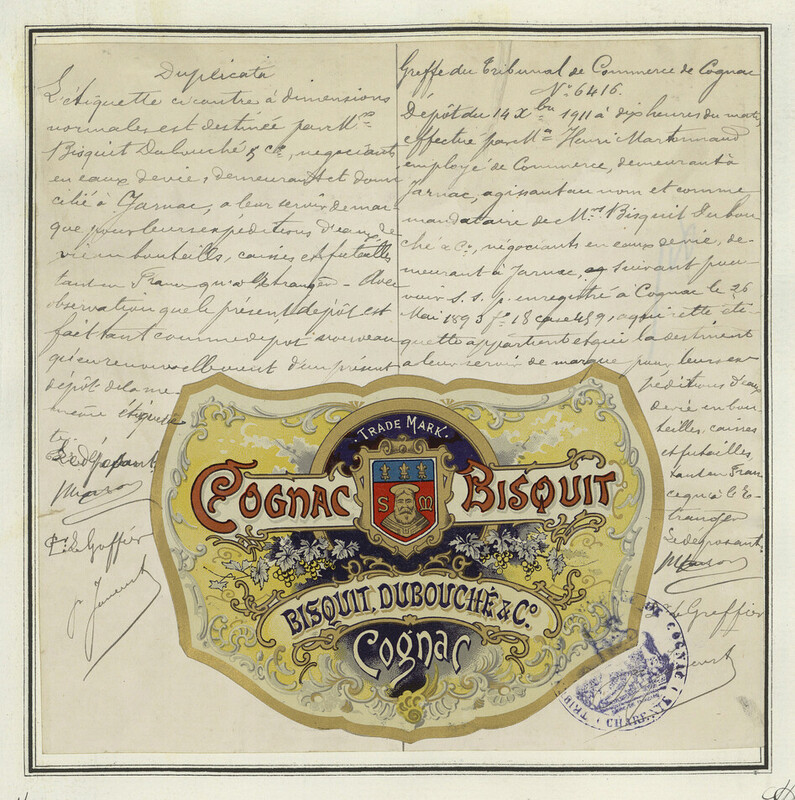 Duplicata
L'étiquette ci contre à dimensions
normales est destinée par Mrs
Bisquit Dubouché & Cie, négociants
en eaux de vie, demeurant et domi
cilié à Jarnac, a leur servir de mar-
que pour leurs expéditions d'eaux de
vie en bouteilles, caisses et futailles
tant en France qu'à l'étranger - Avec
observation que le présent dépôt est
fait tant comme dépôt nouveau
qu'en renouvellement d'un présent
dépôt de la me-
me étiquette
Le déposant
Le Greffier
Greffe du Tribunal de Commerce de Cognac
N° 6416.
Dépôt du 14 Xbre 1911 à dix heures du matin,
effectué par Mr Henri
employé de Commerce, demeurant à
Jarnac, agissant au nom et comme
mandataire de Mrs Bisquit Dubou-
ché & Co, négociants en eaux de vie, de-
meurant à Jarnac, suivant pou-
voir s. s. p. enregistré à Cognac le 26
Mai 1893 fo 18 case 459, à qui cette éti-
quette appartient et qui la destinent
a leur servir de marque pour leurs ex
péditions d'eaux
de vie en bou-
teilles, caisses
et futailles,
tant en Fran
ce qu'à l'E-
tranger
Le déposant
Le Greffier
TRADE MARK
COGNAC BISQUIT
S M
BISQUIT, DUBOUCHÉ & Co.
Cognac